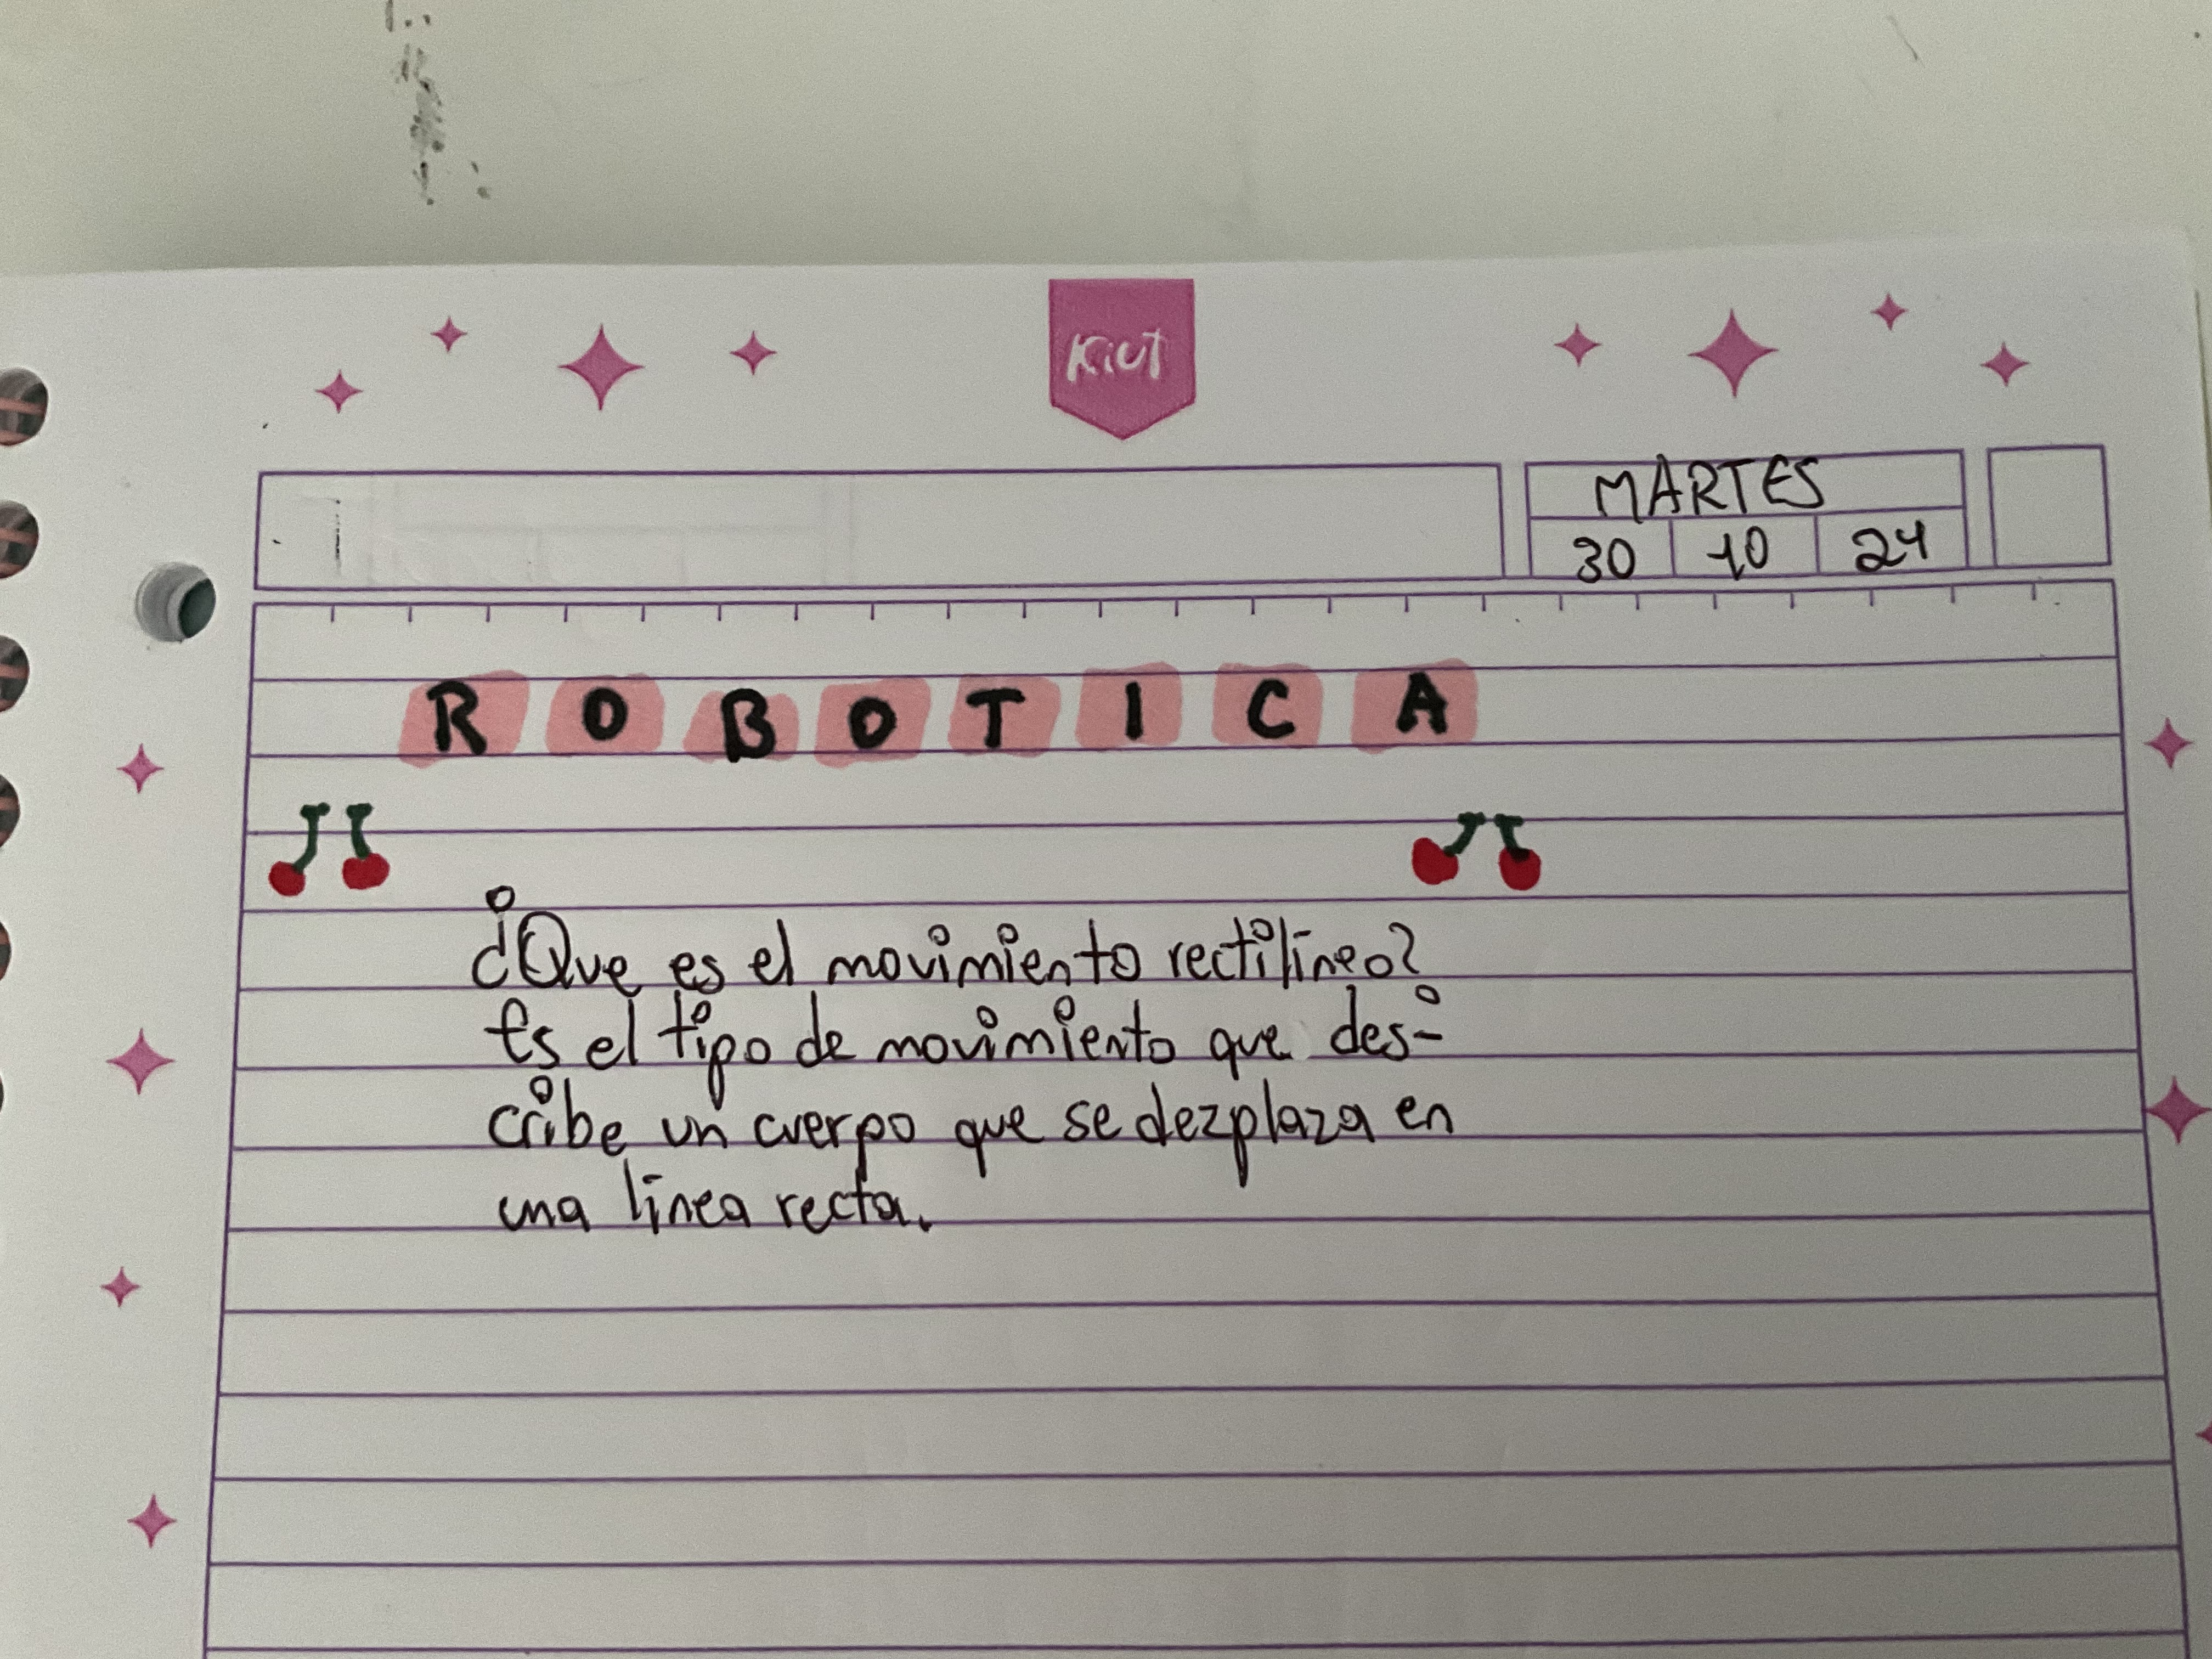 Kiut
MARTES
30 10 24
ROBOTICA
¿Que es el movimiento rectilíneo?
Es el tipo de movimiento que des-
cribe un cuerpo que se dezplaza en
una línea recta.